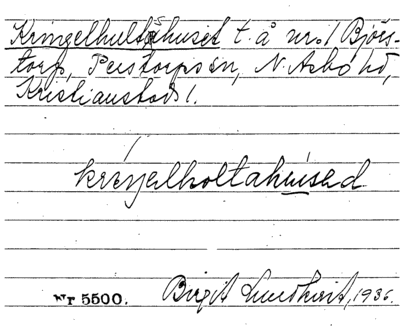 Kringelhultshuset t. å nr. 1 Björs-
torp, Perstorps sn, N. Åsbo hd,
Kristianstads l.
kriŋəlholtahused
Nr 5500. Birgit Lundkvist, 1936.